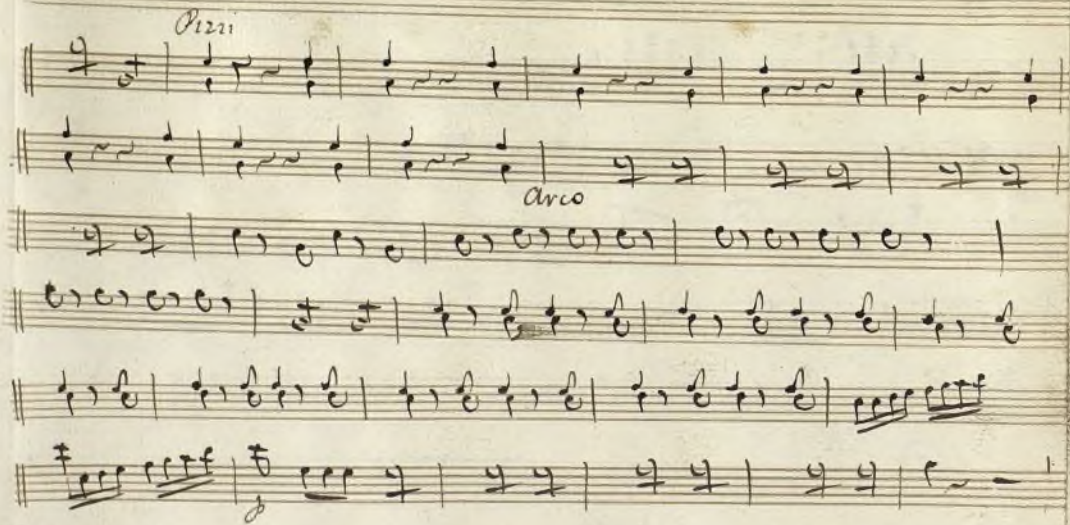 Pizzi
Arco
p